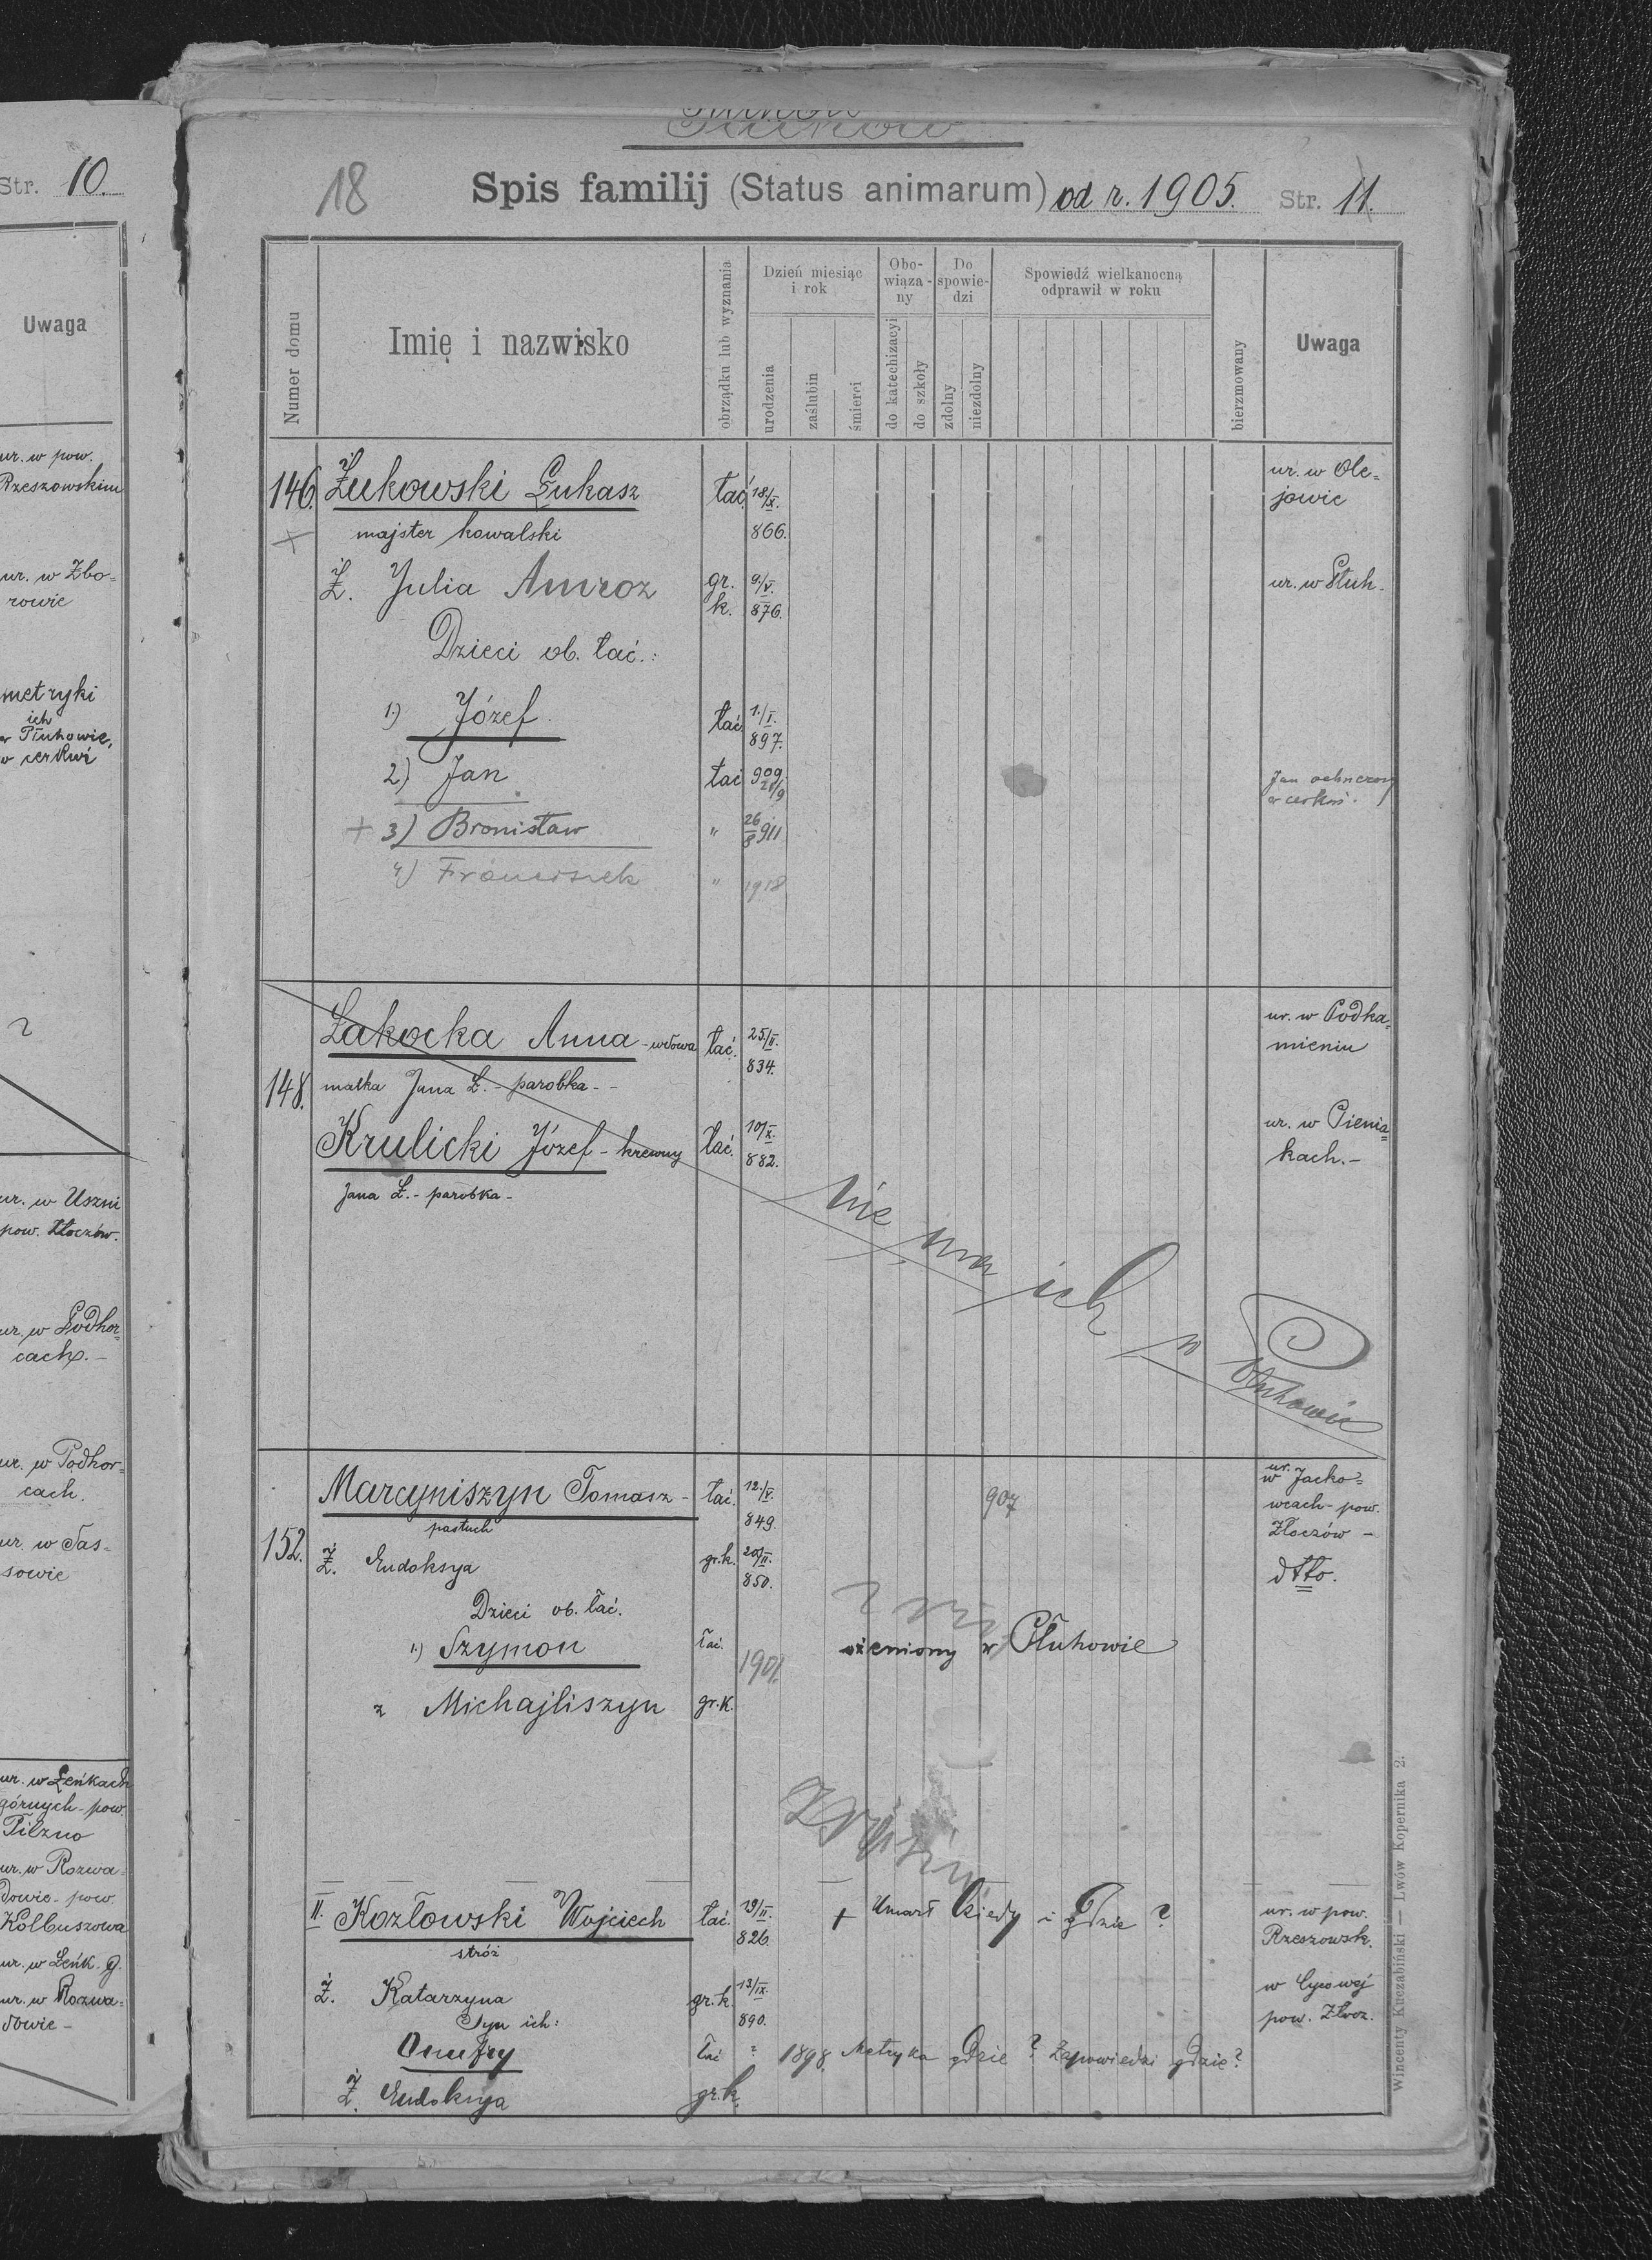 Str. 10.
Uwaga
ur. w pow.
Rzeszowskim
ur. w Zbo=
rowie
metryki
ich
w Płuhowie,
w cerkwi
ur. w Uszni
pow. Złoczów.
ur. w Podhor=
cach.-
ur. w Podhor=
cach.
ur. w Sas=
sowie
ur. w Łeńkach
górnych - pow.
Pilzno
ur. w Rozwa=
dowie - pow.
Kolbuszowa
ur. w Łeńk. g.
ur. w Rozwa=
dowie -
Płuhów
18
Spis familij (Status animarum) od r. 1905. Str. 11.
Numer domu
Imię i nazwisko
obrządku lub wyznania
Dzień miesiąc
i rok
urodzenia
zaślubin
śmierci
Obo-
wiąza-
ny
do katechizacyi
do szkoły
Do
spowie-
dzi
zdolny
niezdolny
Spowiedź wielkanocną
odprawił w roku
bierzmowany
Uwaga
146. Żukowski Łukasz łać. 18/X. ur. w Ole=
+ majster kowalski 866. jowie
Ż. Julia Amroz gr. 9/V. ur. w Płuh.
k. 876.
Dzieci ob. łać.:
1) Józef łać 1./I.
897.
2) Jan łać 909. Jan ochrczony
21/9 w cerkwi.
+ 3) Bronisław " 26/8 911
4) Franciszek " 1918
Łakocka Anna - wdowa łać. 25/II. ur. w Podka=
834. mieniu
148. matka Jana Ł. - parobka - -
Krulicki Józef - krewny łać. 10/X. ur. w Pienia=
882. kach.-
Jana Ł. - parobka -
Nie ma ich w
Płuhowie
Marcyniszyn Tomasz - łać. 12./V. 907 ur.
w Jacko=
849. wcach - pow.
pastuch Złoczów -
152. Ż. Eudoksya gr.k. 20/II. dtto.
850.
Dzieci ob. łać.
1.) Szymon łać. 1901. ożeniony w Płuhowie
z Michajliszyn gr.k.
II. Kozłowski Wojciech łać. 19/II. + Umarł kiedy i gdzie? ur. w pow.
stróż 826. Rzeszowsk.
Ż. Katarzyna gr.k. 13/IX. w Łycowej
890. pow. Złocz.
Syn ich:
Onufry łać ? 1898. Metryka gdzie? Zapowiedzi gdzie?
Ż. Eudoksya gr.k.
Wincenty Kuczabiński — Lwów Kopernika 2.